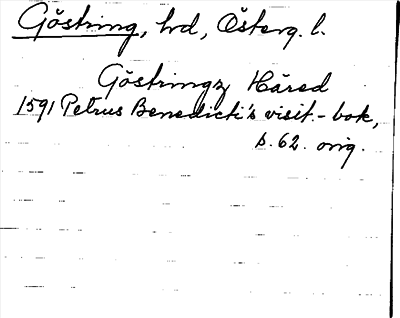 Göstring, hd, Österg. l.
Göstringz Häred
1591 Petrus Benedicti's visit.-bok,
s. 62. orig.